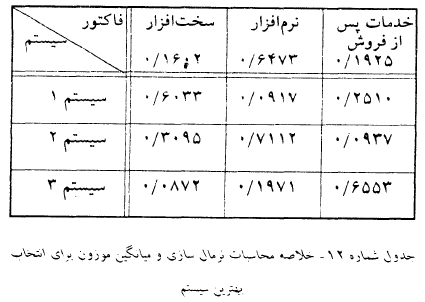 فاکتور سخت‌افزار نرم‌افزار خدمات پس از فروش
سیستم ۰/۱۶۰۲ ۰/۶۴۷۳ ۰/۱۹۲۵
سیستم ۱ ۰/۶۰۳۳ ۰/۰۹۱۷ ۰/۲۵۱۰
سیستم ۲ ۰/۳۰۹۵ ۰/۷۱۱۲ ۰/۰۹۳۷
سیستم ۳ ۰/۰۸۷۲ ۰/۱۹۷۱ ۰/۶۵۵۳
جدول شماره ۱۲- خلاصه محاسبات نرمال سازی و میانگین موزون برای انتخاب
بهترین سیستم